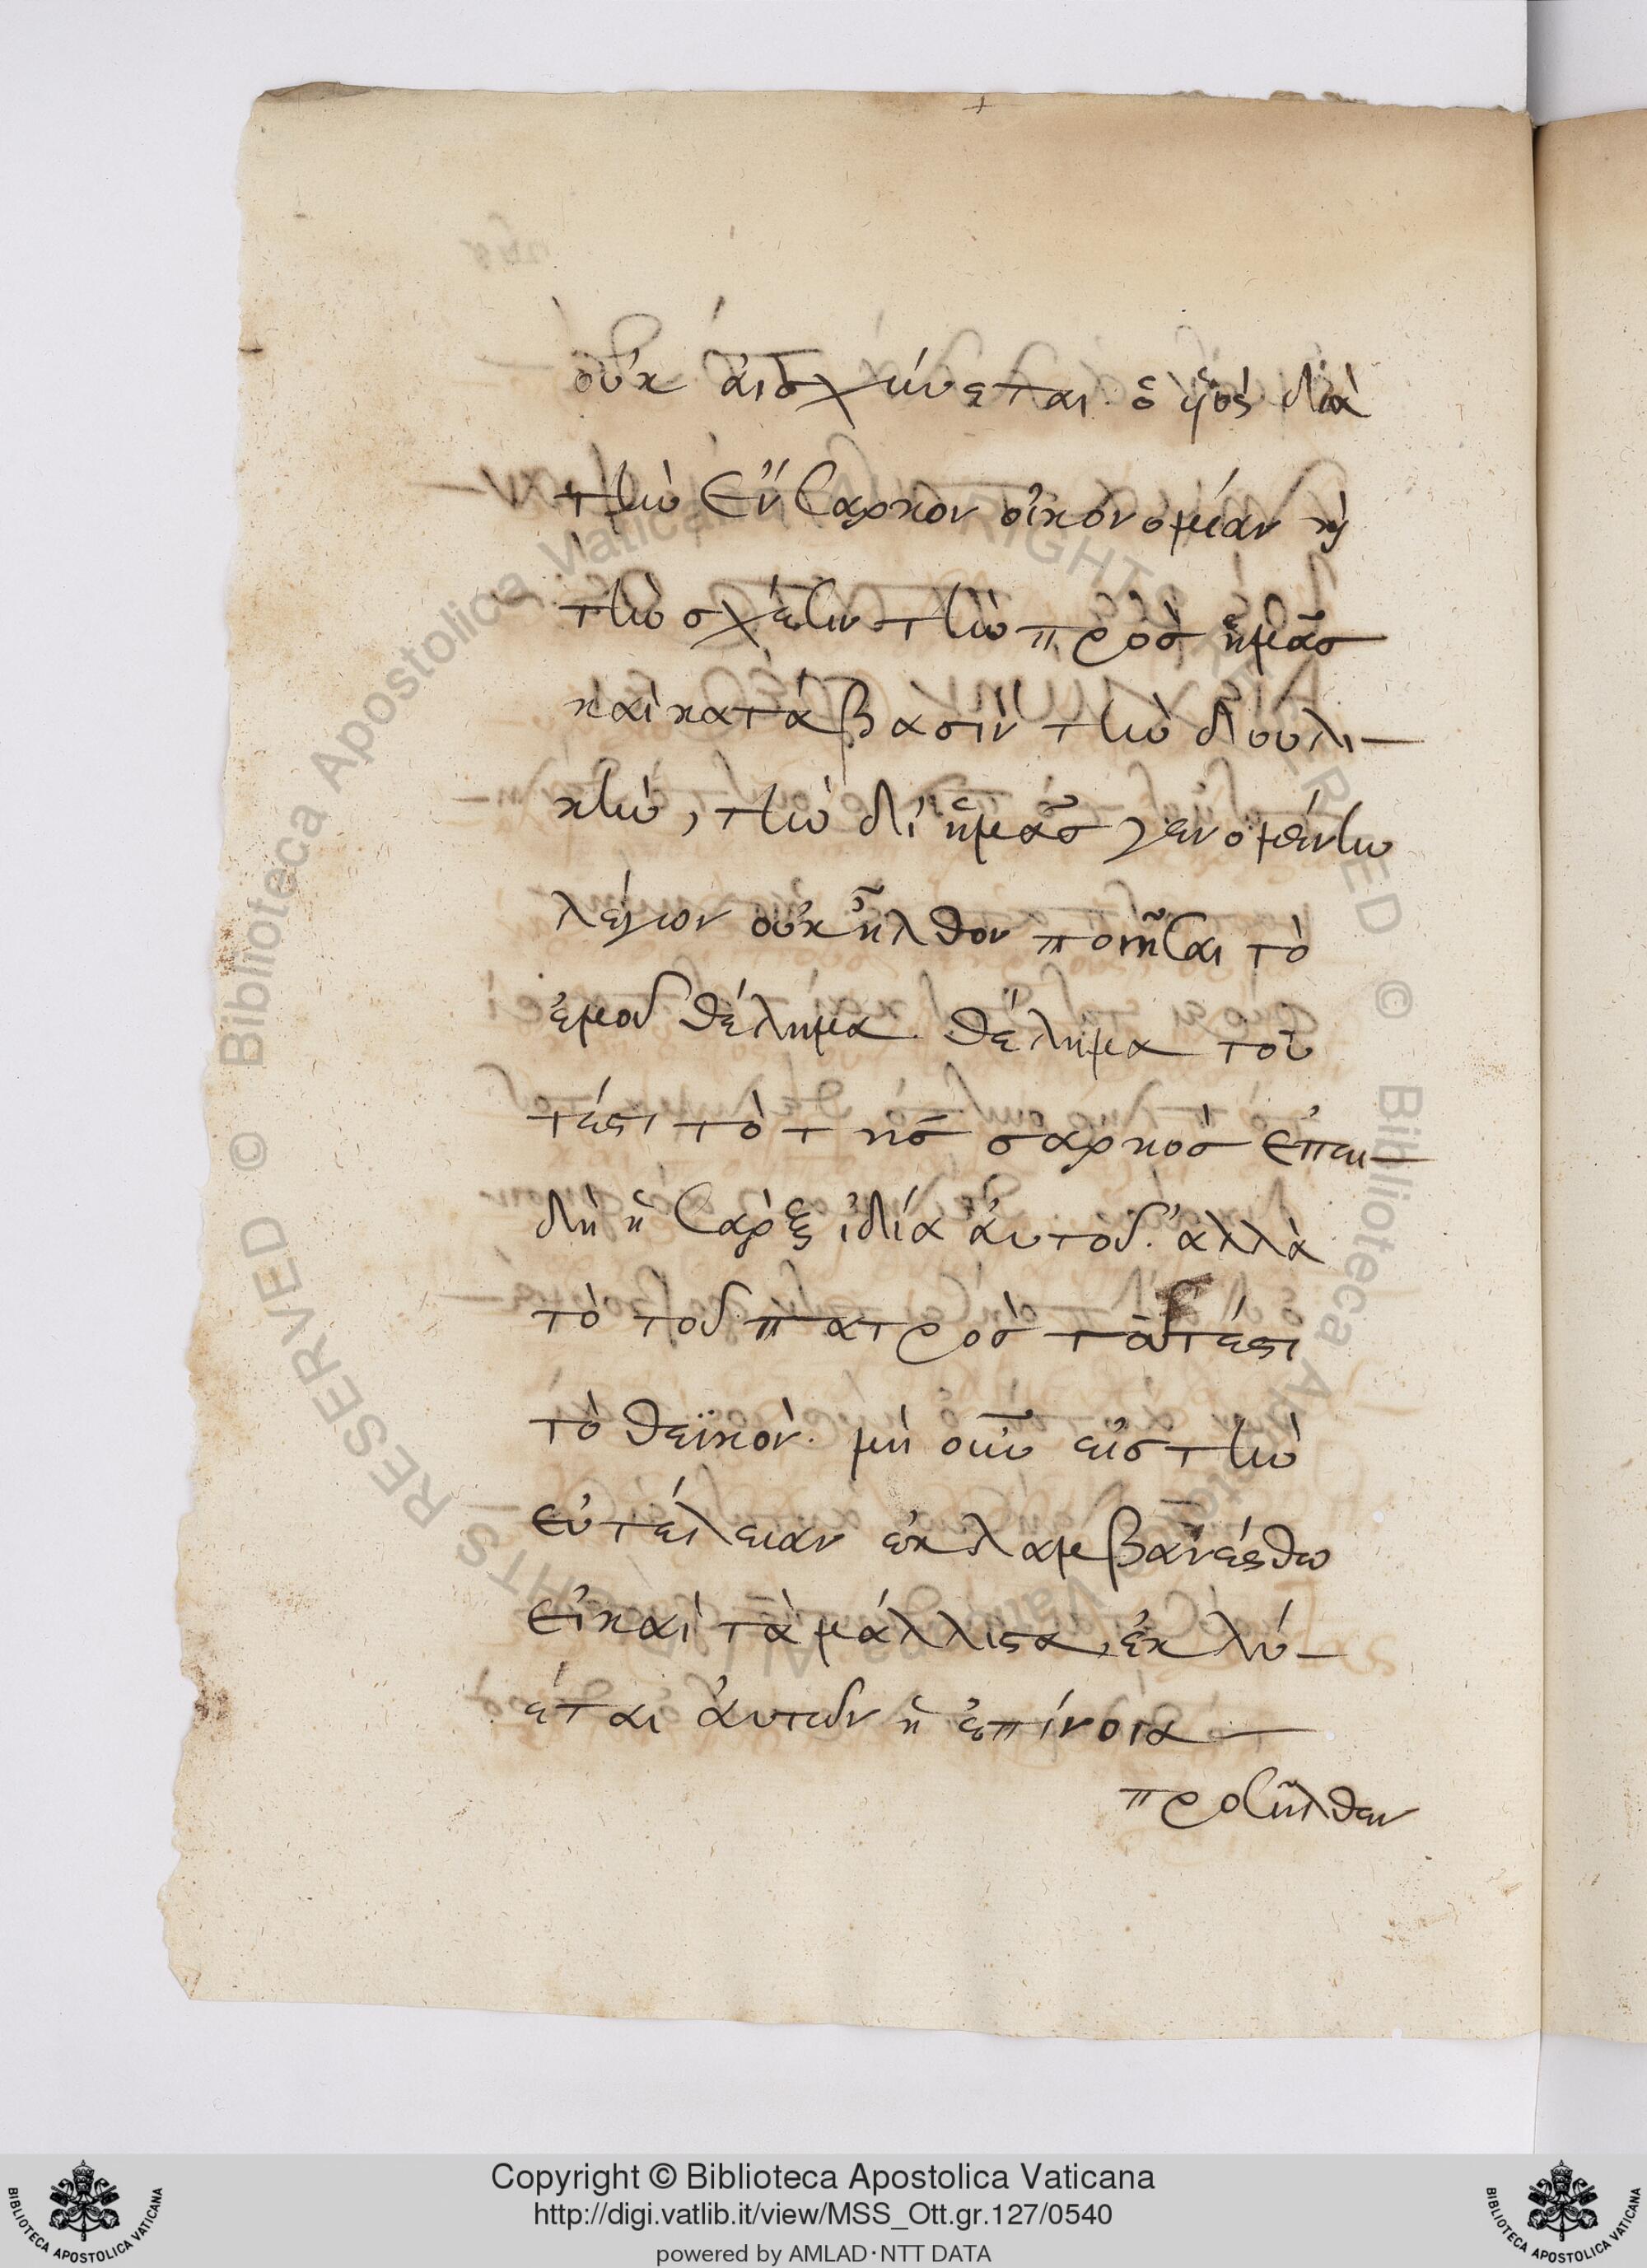 οὐκ ἀισχύνεται ὁ υἱὸς διὰ
τὴν ἔνσαρκον οἰκονομίαν κ̀
τὴν σχέσιν τὴν πρὸς ἡμᾶς
καὶ κατάβασιν τὴν δουλι-
κὴν, τὴν δι' ἡμᾶς γενομένην
λέγων οὐκ ἦλθον ποιῆσαι τὸ
ἐμοῦ θέλημα. θέλημα του
τέστι τὸ τῆς σαρκὸς ἐπει-
δὴ ἡ σὰρξ ἰδία ἀυτοῦ. ἀλλὰ
τὸ τοῦ πατρὸς τουτέστι
τὸ θεϊκὸν. μὴ οὖν εἰς τὴν
εὐτέλειαν ἐκλαμβανέσθω
εἰ καὶ τὰ μάλλιστα, ἐκλύ-
εται ἀυτῶν ἡ ἐπίνοια
προσῆλθεν
Copyright © Biblioteca Apostolica Vaticana
http://digi.vatlib.it/view/MSS_Ott.gr.127/0540
powered by AMLAD·NTT DATA
BIBLIOTECA APOSTOLICA VATICANA
BIBLIOTECA APOSTOLICA VATICANA